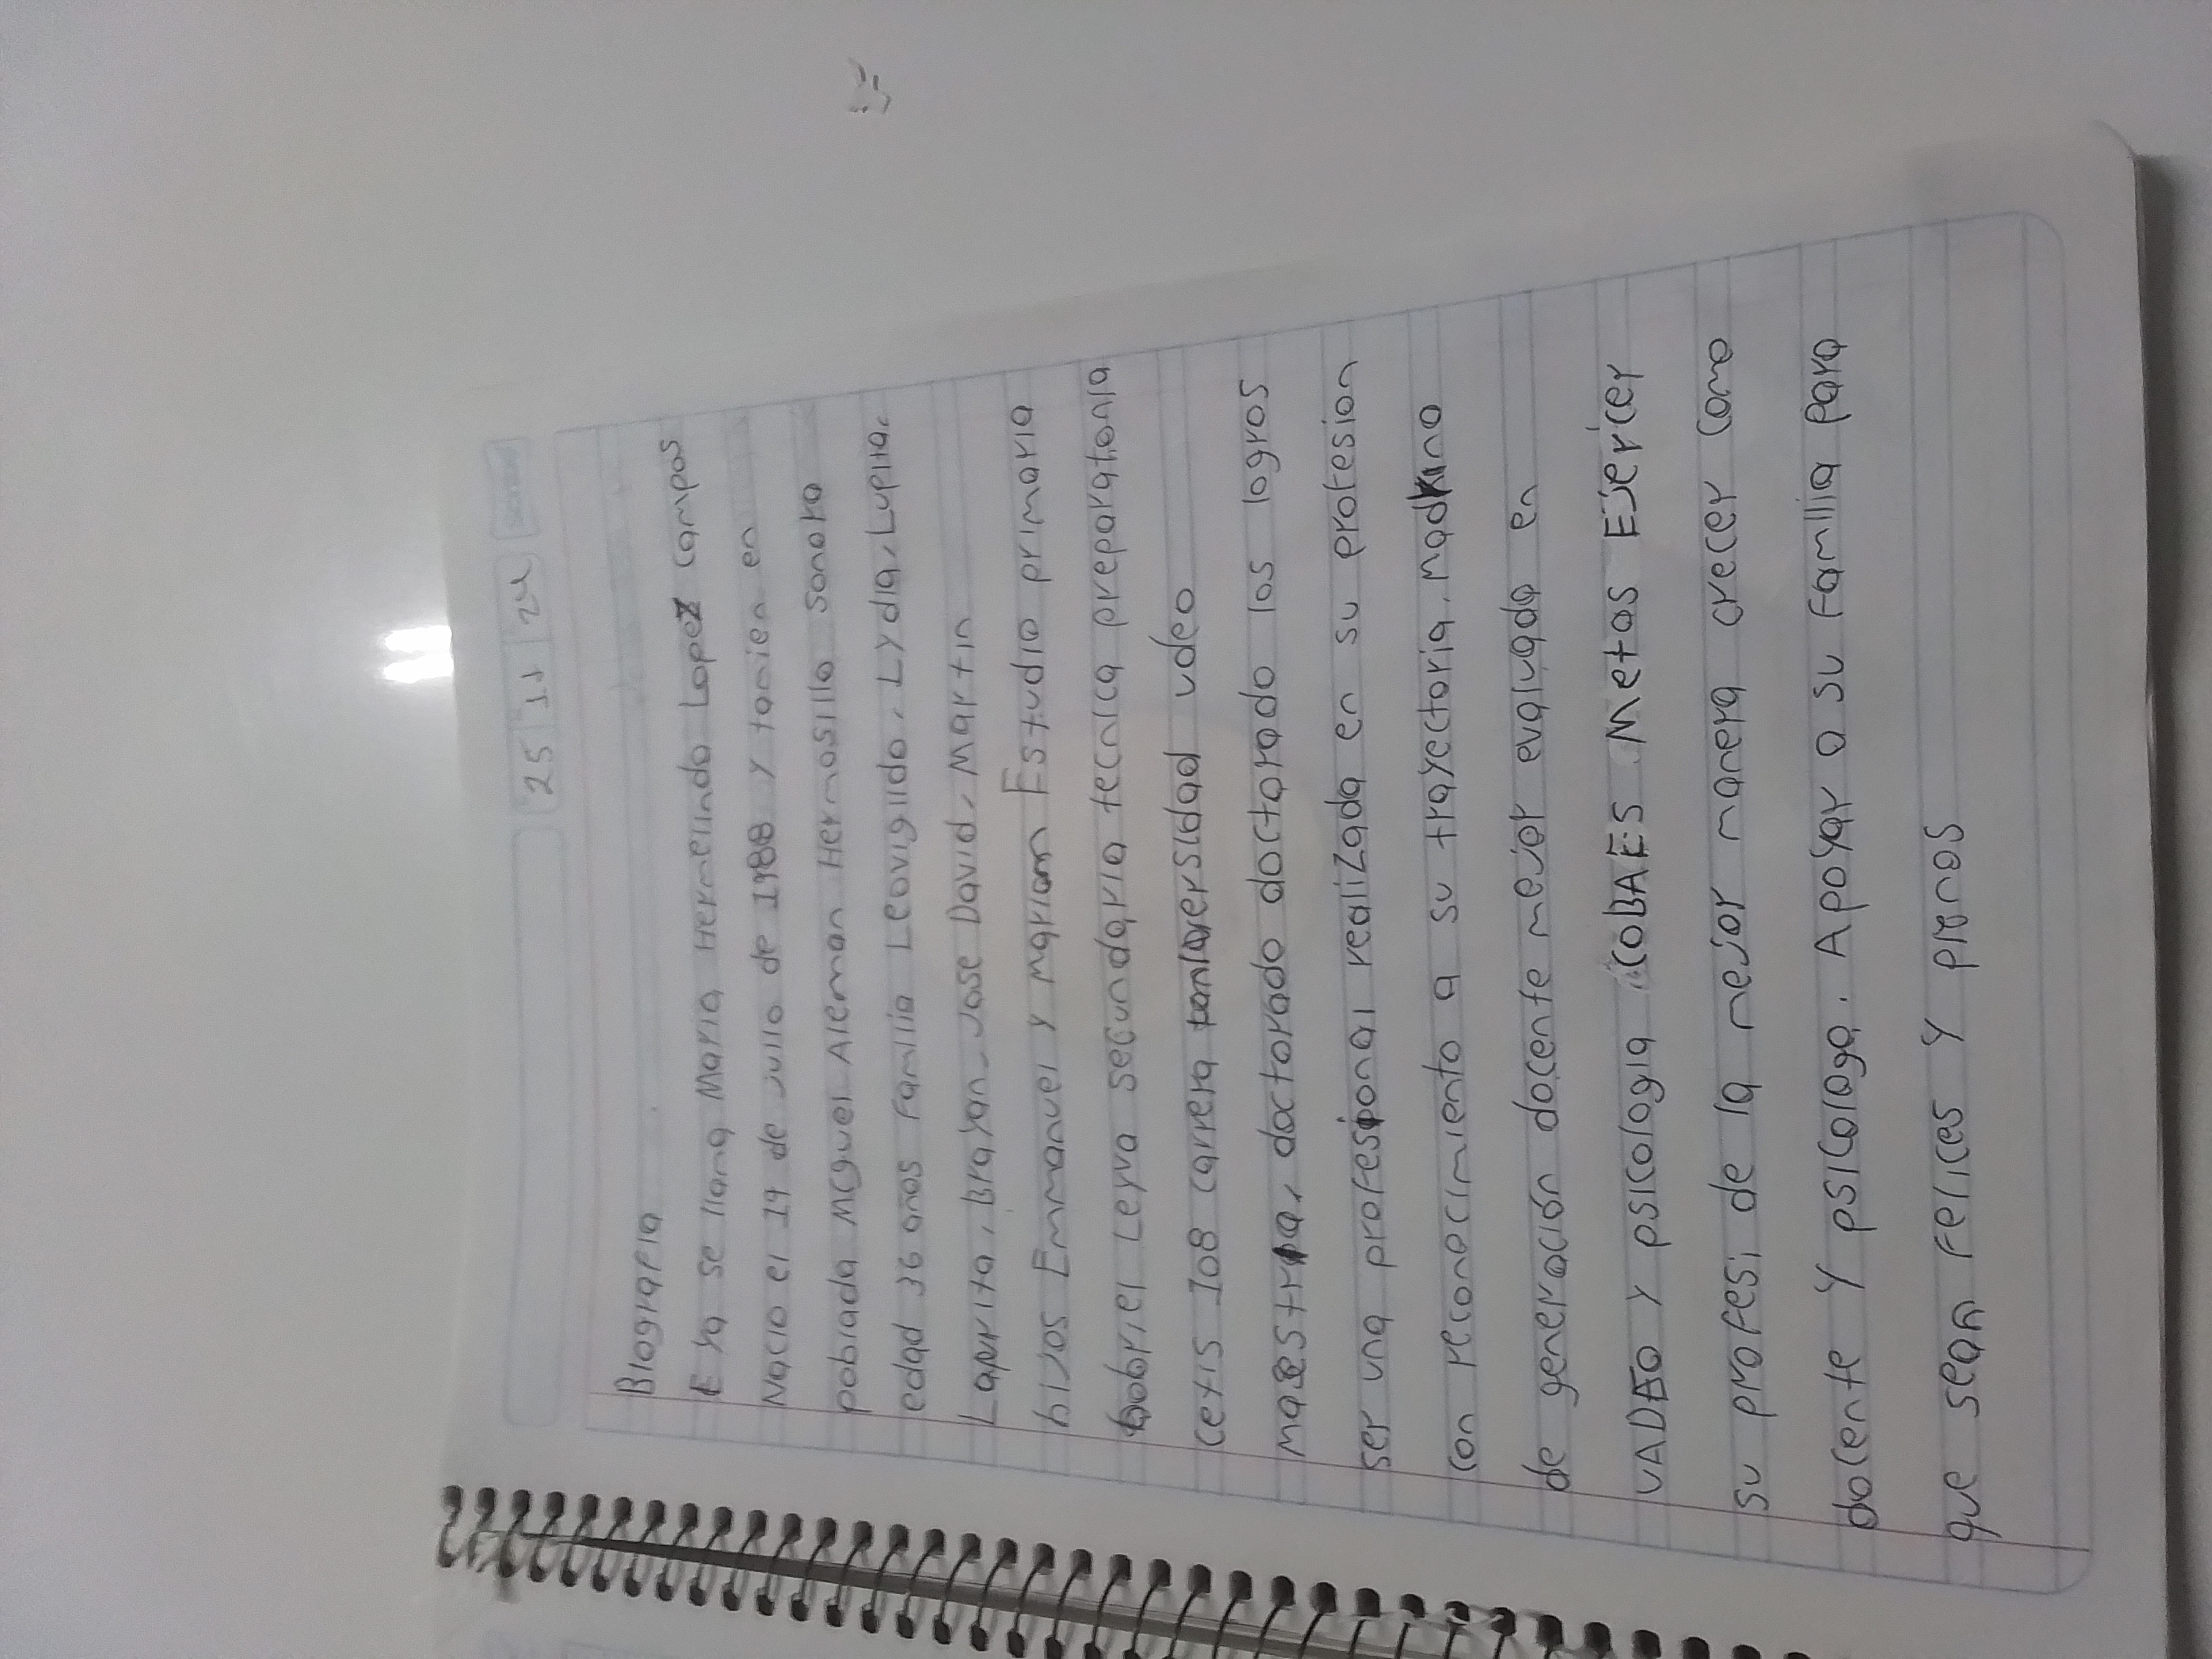 25 11 24
Biografia
Eya se llama Maria Hermelinda Lopez Campos
Nacio el 14 de Julio de 1988 y tamien en
poblada Miguel Aleman Hermosillo Sonora
edad 36 años Familia Leovigildo, Lydia, Lupita,
Laurita, Brayan, Jose David, Martin
hijos Emmanuel y Marian Estudio primaria
Gabriel Leyva secundaria tecnica preparatoria
Cetis 108 carrera universidad udeo
maestria, doctorado doctorado los logros
ser una profesional realizada en su profesion
con reconocimiento a su trayectoria, madrina
de generación docente mejor evaluada en
UADEO y psicologia COBAES Metas Ejercer
su profesi de la mejor manera crecer como
docente y psicologa. Apoyar a su familia para
que sean felices y plenos